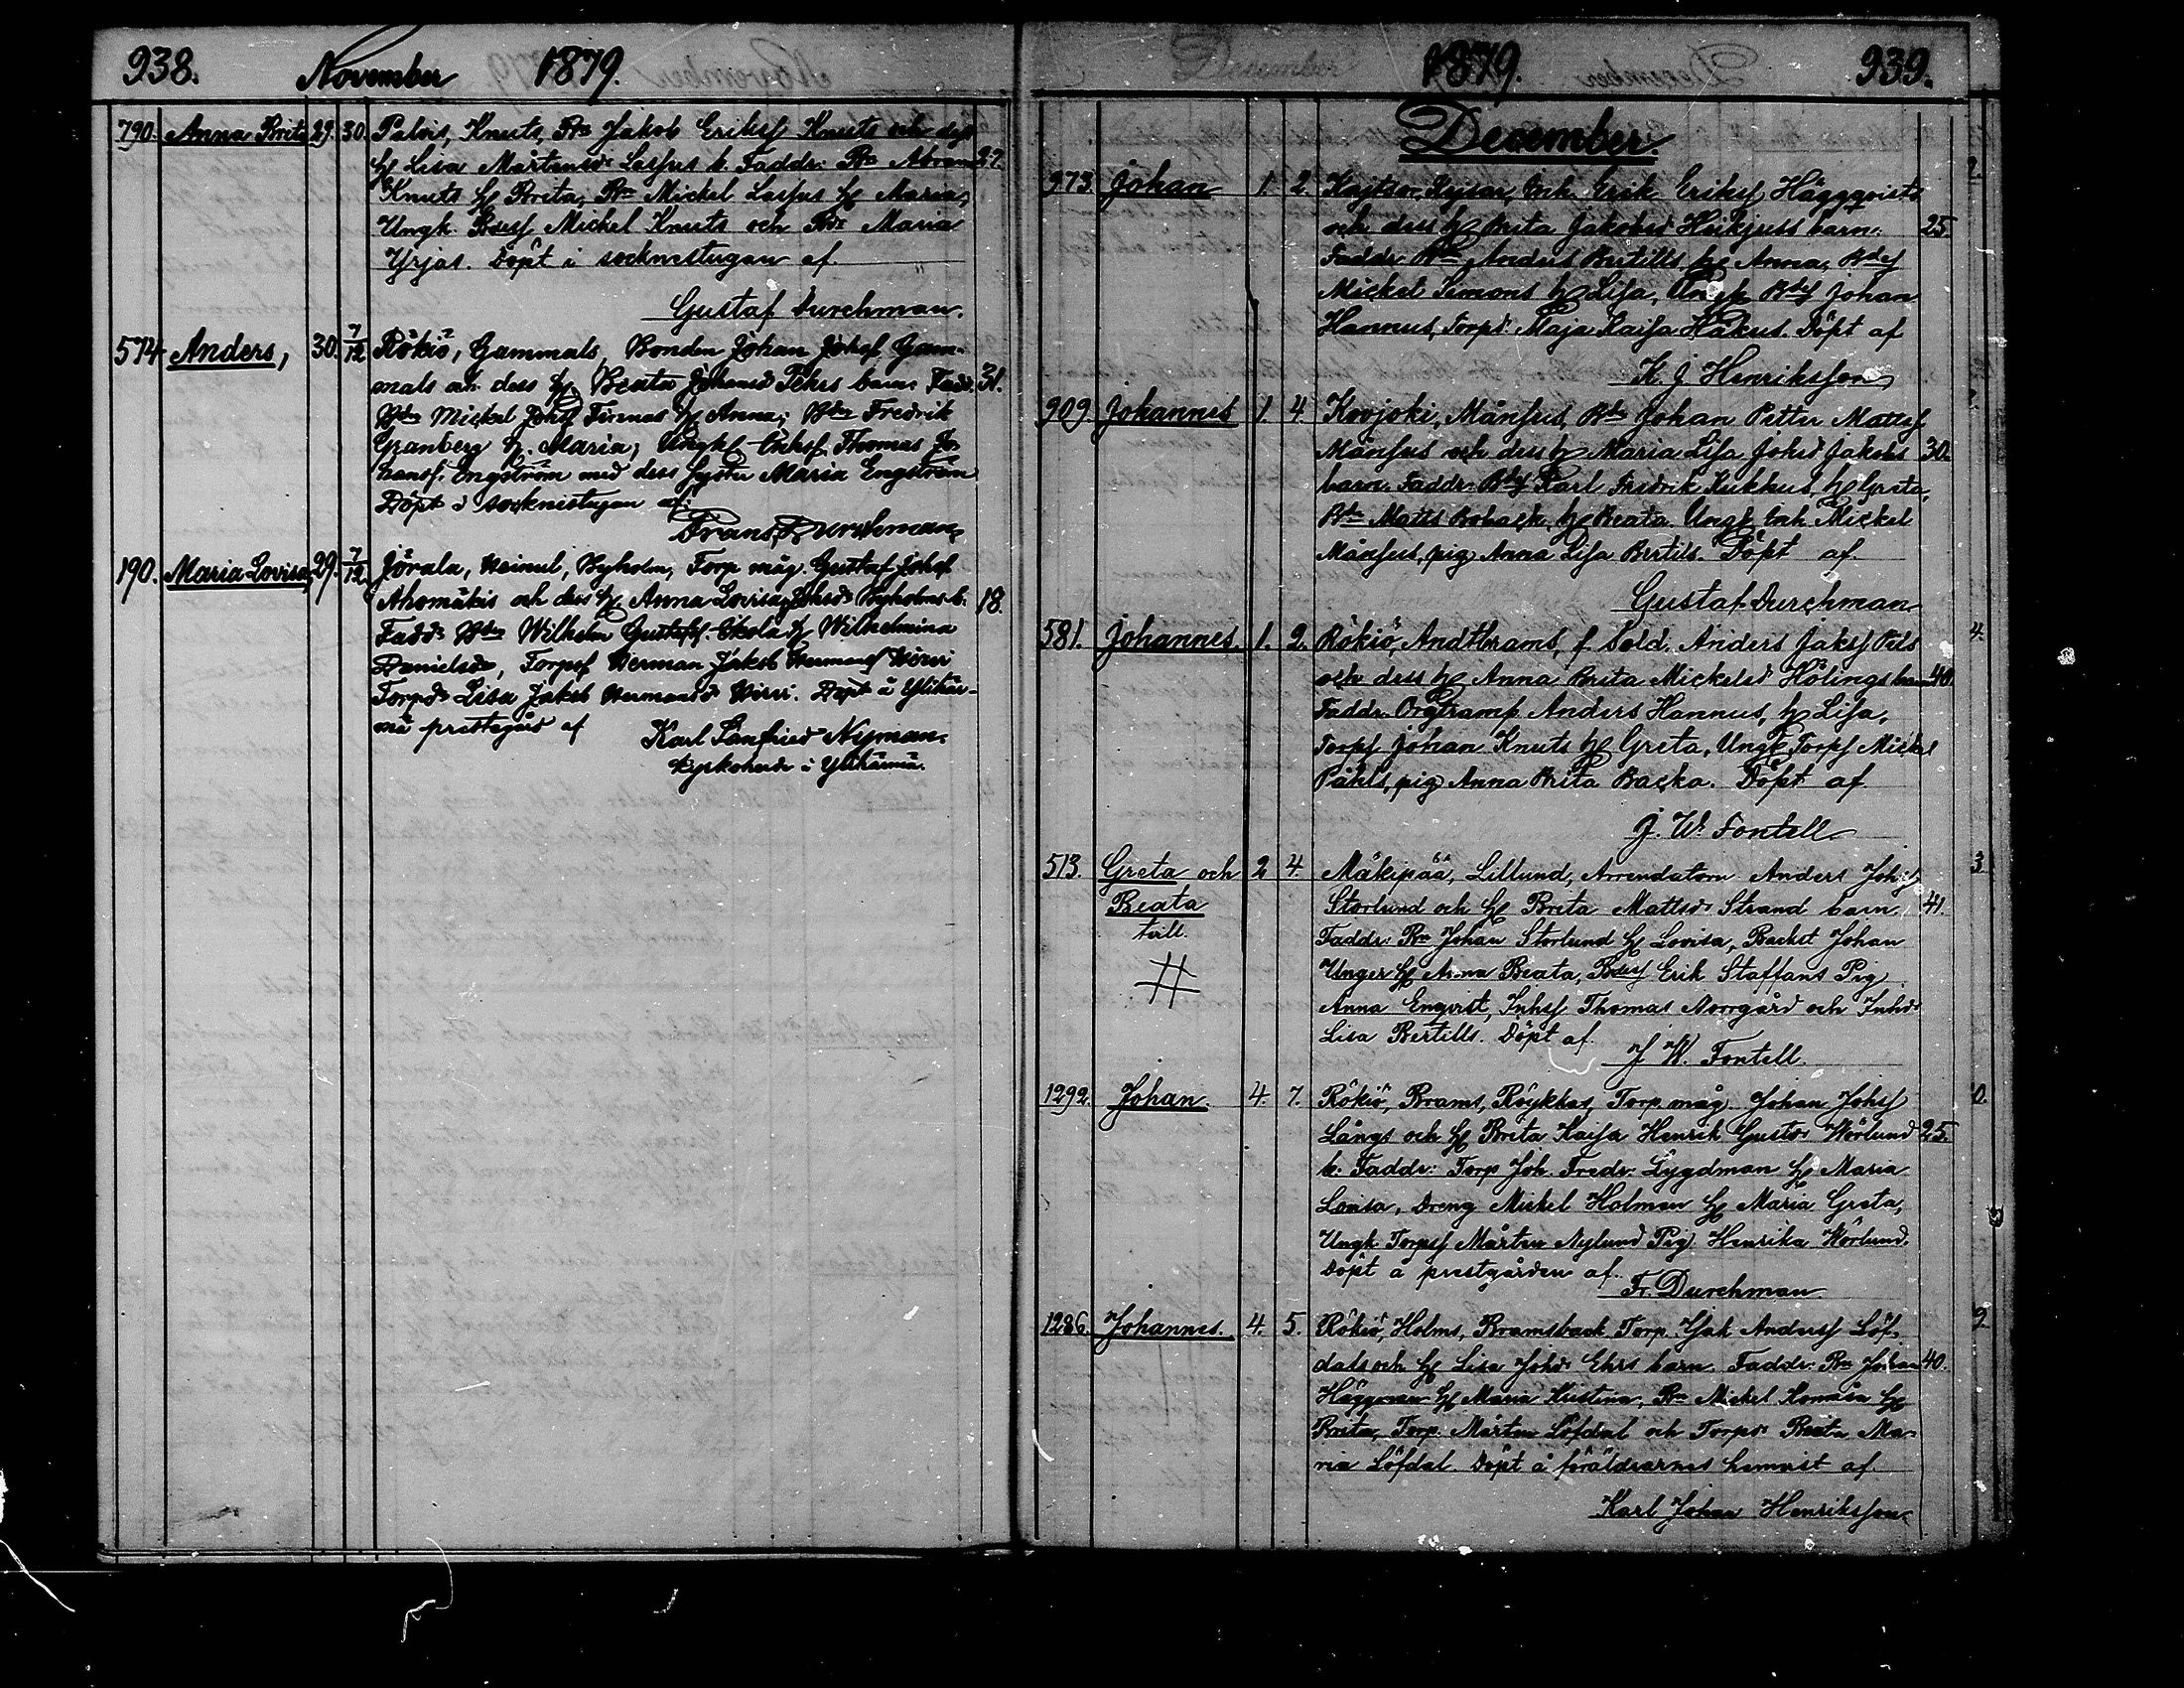 938. November 1879.
790. Anna Brita 29. 30. Palvis, Knuts, Bn Jakob Eriksf Knuts och dess
Hu Lisa Martensdr Lassus b. Faddr: Bn Abram 27.
Knuts Hu Brita, Bn Mickel Lassus Hu Maria,
Ungk. Bdesf Michel Knuts och Bdr Maria
Yrjas. Döpt i socknestugan af
Gustaf Durchman.
574 Anders, 30. 7/12 Rökiö, Gammals, Bonden Johan Johsf Gam-
mals och dess Hu Beata Johansd Pehrs barn. Fadd. 31.
Bdn Mickel Johsf Finnas Hu Anna; Bdn Fredrik
Granberg H. Maria; Ungk Inhsf Thomas Jo-
hansf. Engström med dess Syster Maria Engström
Döpt i socknestugan af:
Frans Durchman
190. Maria Lovisa, 29. 7/12 Jörala, Heimul, Byholm, Torp måg Gustaf Johsf
Ahomäkis och dess Hu Anna Lovisa Johsdr Byholms b. 18.
Fadd: Bdn Wilhelm Gustafsf. Skola H Wilhelmina
Danielsdr, Torpsf Herman Jakob Hermansf Wirri
Torpdr Lisa Jakob Hermansdr Wirri. Döpt å Ylihär-
mä prestegård af
Karl Sanfried Nyman.
Kyrkoherde i Ylihärmä.
1879. 939.
December.
973. Johan 1. 2. Kajtsor, Kejsar, Enk. Erik Eriksf Häggqvists
och dess Hu Brita Jakobsd Heikjuss barn. 25.
Faddr Bn Anders Bertills Hu Anna, Bdsf
Mickel Simons Hu Lisa, Ungk Bdsf Johan
Hannus, Torpd. Maja Kaisa Håkus. Döpt af
K. J Henriksson
909. Johannes 1. 4. Kovjoki, Månsus, Bdn Johan Petter Mattsf
Månsus och dess Hu Maria Lisa Johsd Jakobs 30.
barn. Faddr. Bdsf Karl Fredrik Kukkus, Hu Greta,
Bdn Matts Boback, Hu Beata. Ungk Enk Mickel
Månsus, pig Anna Lisa Bertils. Döpt af
Gustaf Durchman
581. Johannes. 1. 2. Rökiö, And.Brams, f. Sold. Anders Jaksf Pils
och dess Hu Anna Brita Mickelsd Hölings barn 40.
Faddr. Orgtramp. Anders Hannus, Hu Lisa,
Torpf Johan Knuts Hu Greta, Ungk Torpf Mickel
Påhls, pig Anna Brita Backa. Döpt af
J. W. Fontell
513. Greta och 2 4. Mäkipää, Lillund, Arrendatorn Anders Johsf
Beata Storlund och Hu Brita Mattsdr Strand barn. 41.
tvill. Faddr: Bn Johan Storlund Hu Lovisa, Backst Johan
Unger Hu Anna Beata, Bdesf Erik Staffans Pig
Anna Enqvist, Inhsf Thomas Norrgård och Inhdr
Lisa Bertills. Döpt af
J W. Fontell.
1292. Johan. 4. 7. Rökiö, Brams, Röykkas, Torp. måg Johan Johsf
Långs och Hu Brita Kaisa Henrik Gustdr Wörlund 25.
b. Faddr: Torp Joh. Fredr. Lygdman Hu Maria
Lovisa, Dreng Mickel Holman Hu Maria Greta,
Ungk Torpsf Mårten Nylund Pig Henrika Wörlund.
Döpt å prestgården af
Fr. Durchman
1286. Johannes. 4. 5. Rökiö, Holms, Bramsback Torp. Isak Andersf Löf-
dals och Hu Lisa Johdr Ehrs barn. Faddr: Bn Johan 40.
Häggman Hu Maria Kustina, Bn Mickel Komäsa Hu
Brita, Torp. Mårten Löfdal och Torpdr Beata Ma-
ria Löfdal. Döpt å föräldrarnes hemvist af
Karl Johan Henriksson.